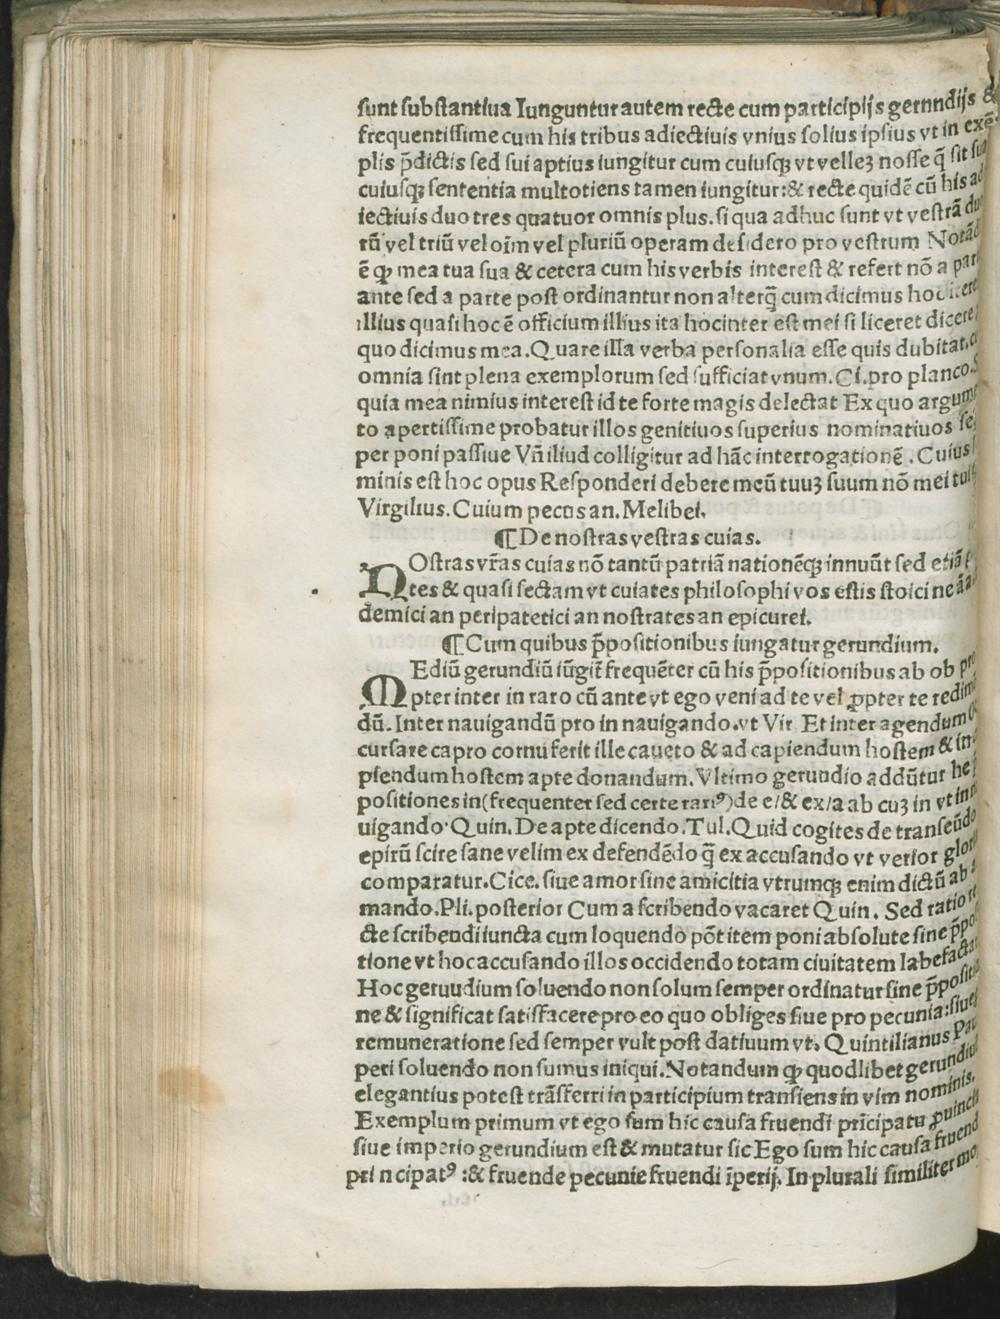 sunt substantiua Iunguntur autem recte cum participijs gerundijs &
frequentissime cum his tribus adiectiuis vnius solius ipsius vt in exē
plis p̄dictis sed sui aptius iungitur cum cuiusqꝫ vt velleꝫ nosse q̄ sit su
cuiusqꝫ sententia multotiens tamen iungitur:& recte quidē cū his ad
iectiuis duo tres quatuor omnis plus.si qua adhuc sunt vt vestrā du
rū vel triū vel oīm vel pluriū operam desidero pro vestrum Notād
ē qꝫ mea tua sua & cetera cum his verbis interest & refert nō a part
ante sed a parte post ordinantur non alterq̄ cum dicimus hoc
illius quasi hoc ē officium illius ita hocinter est mei si liceret dicere
quo dicimus mea.Quare illa verba personalia esse quis dubitat.
omnia sint plena exemplorum sed sufficiat vnum.Ci.pro planco.
quia mea nimius interest id te forte magis delectat Ex quo argume
to apertissime probatur illos genitiuos superius nominatiuos
per poni passiue Vñ iliud colligitur ad hāc interrogationē.Cuius
minis est hoc opus Responderi debere meū tuuꝫ suum nō mei tui
Virgilius.Cuium pecus an.Melibei.
¶De nostras vestras cuias.
NOstras vr̄as cuias nō tantū patriā nationēqꝫ innuūt sed etiā
tes & quasi sectam vt cuiates philosophi vos estis stoici ne
demici an peripatetici an nostrates an epicurei.
¶Cum quibus p̄positionibus iungatur gerundium.
MEdiū gerundiū iūgit̄ frequēter cū his p̄positionibus ab ob pro
pter inter in raro cū ante vt ego veni ad te vel ꝓpter te redimē
dū.Inter nauigandū pro in nauigando.vt Vir Et inter agendum
cursare capro cornu ferit ille caueto & ad capiendum hostem & in
pſendum hostem apte donandum.Vltimo gerundio addūtur he
positiones in(frequenter sed certe rariꝰ)de e/& ex/a ab cuꝫ in vt in
uigando·Quin.De apte dicendo.Tul.Quid cogites de transeūdo
epirū scire sane velim ex defendēdo q̄ ex accusando vt verior glori
comparatur.Cice.siue amor sine amicitia vtrumqꝫ enim dictū ab
mando.Pli.posterior Cum a scribendo vacaret Quin.Sed ratio
cte scribendi iuncta cum loquendo pōt item poni absolute sine p̄po
tione vt hoc accusando illos occidendo totam ciuitatem labefacta
Hoc geruudium soluendo non solum semper ordinatur sine p̄positio
ne & significat satisfacere pro eo quo obliges siue pro pecunia:siue
remuneratione sed semper vult post datiuum vt, Quintilianus Pau
peri soluendo non sumus iniqui.Notandum qꝫ quodlibet gerundiū
elegantius potest trāsferri in participium transiens in vim nominis.
Exemplum primum vt ego sum hic causa fruendi prīcipatu ꝓuincie
siue imperio gerundium est & mutatur sic Ego sum hic causa fruend
principatꝰ:& fruende pecunie fruendi īperij.In plurali similiter mo